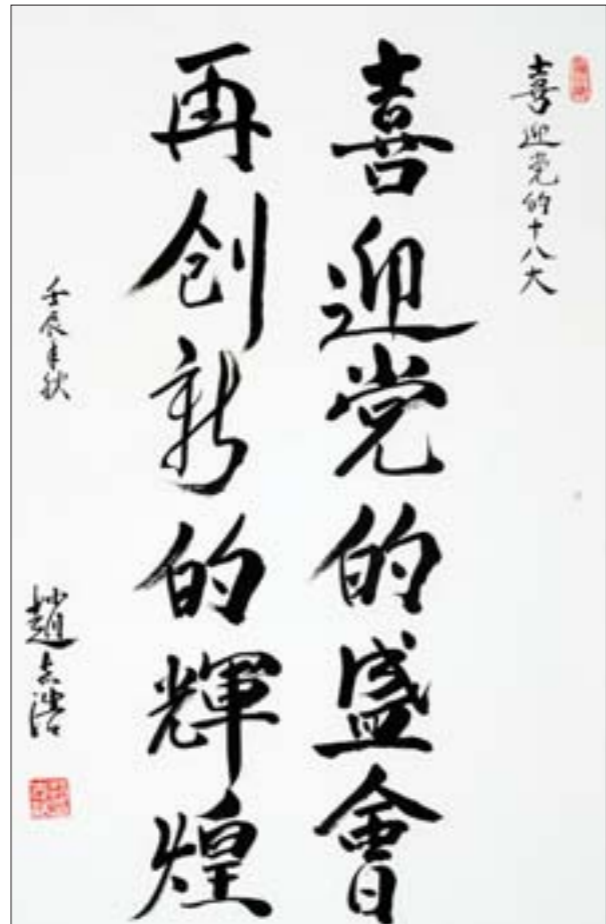 喜迎党的十八大
喜迎党的盛會
再创新的輝煌
壬辰年秋
趙志浩